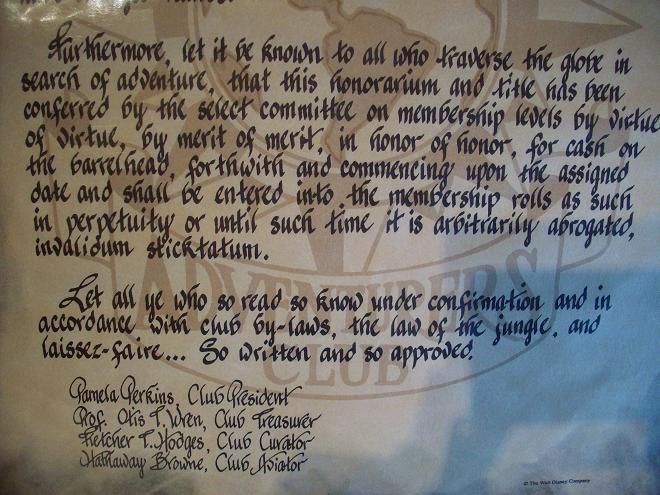 Furthermore, let it be known to all who traverse the globe in
search of adventure, that this honorarium and title has been
conferred by the select committee on membership levels by virtue
of virtue, by merit of merit, in honor of honor, for cash on
the barrelhead, forthwith and commencing upon the assigned
date and shall be entered into the membership rolls as such
in perpetuity or until such time it is arbitrarily abrogated,
invalidum sticktatum.
ADVENTURERS
Let all ye who so read so know under confirmation and in
accordance with club by-laws, the law of the jungle, and
laissez-faire... So written and so approved.
CLUB
Pamela Perkins, Club President
Prof. Otis T. Wren, Club Treasurer
Fletcher T. Hodges, Club Curator
Hathaway Browne, Club Aviator
© The Walt Disney Company